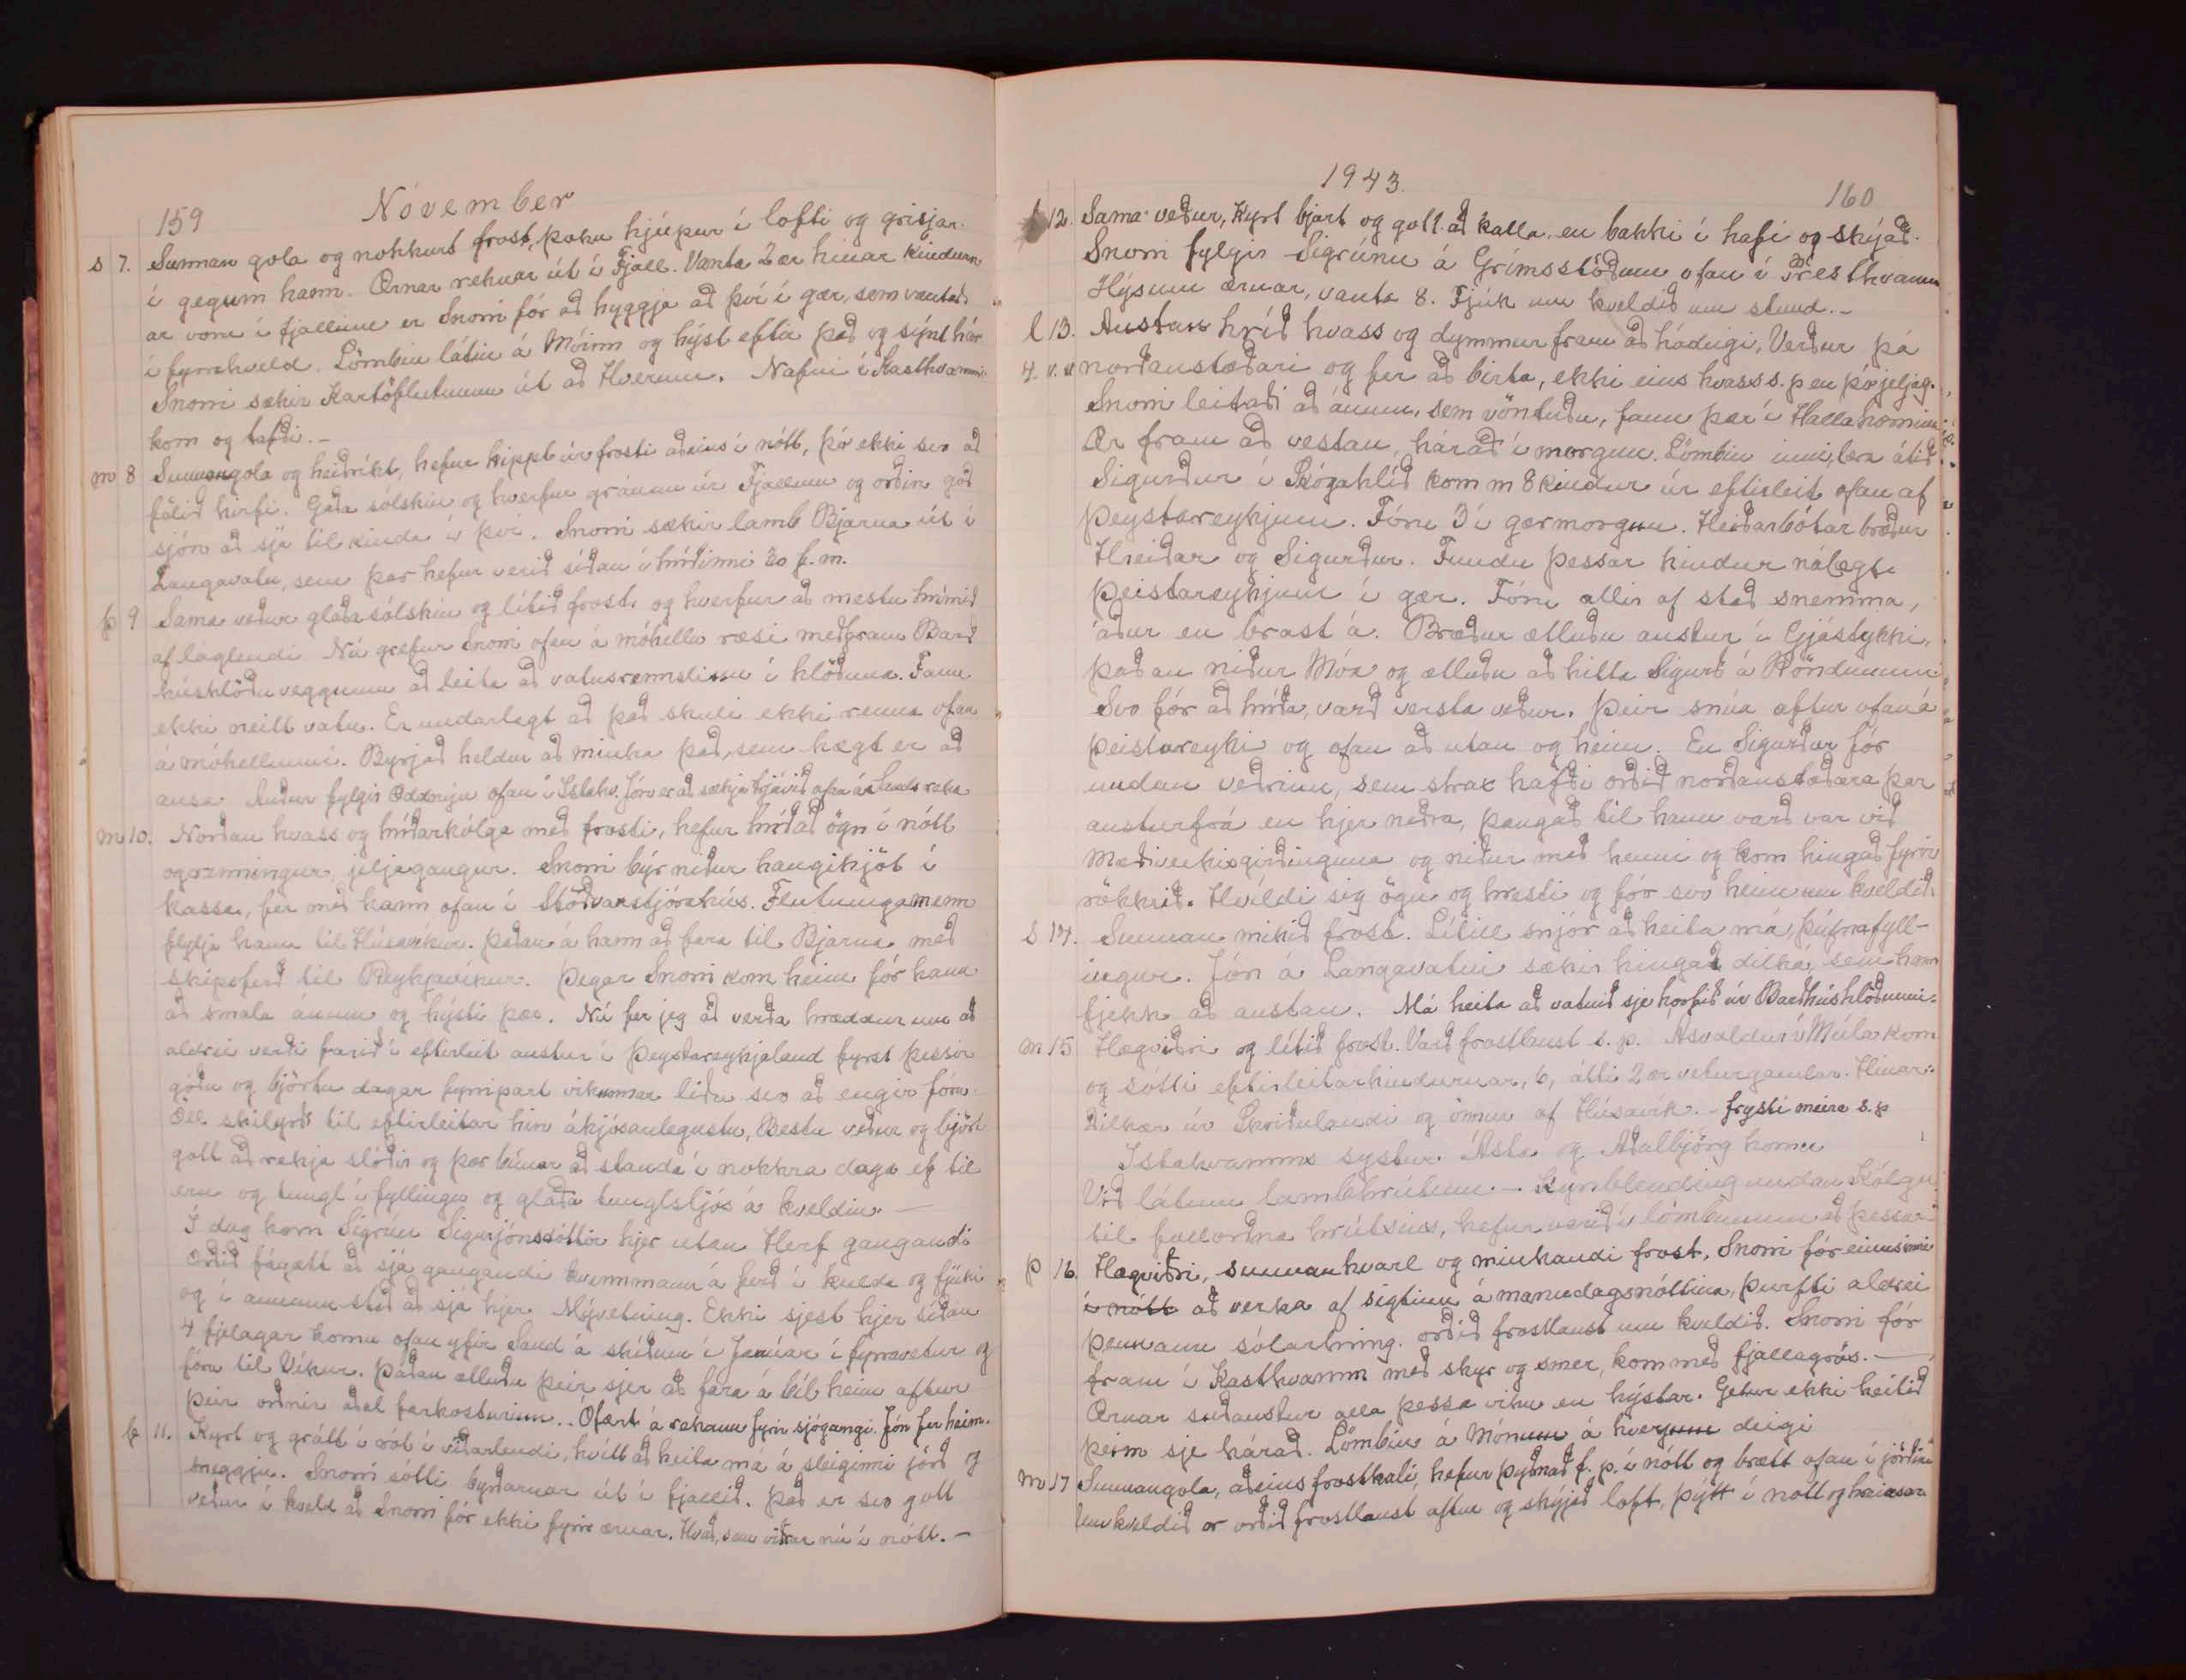 159 November
s 7. Sunnan gola og nokkurt frost, þoku hjúpur í lofti og grisjar
í gegum hann. Ærnar reknar út í Fjall. Vanta 2 ær hinar kindurn
ar voru í fjallinu er Snorri fór að hyggja að því í gær, sem vantað
í fyrrakveld. Lömbin látin á Móinn og hýst eftir það og sýnt hár
Snorri sækir Kartöfluturnum út að Hverum. Nafni í Kasthvammi
kom og tafði.–
m 8 Sunnangola og heiðríkt, hefur kippt úr frosti aðeins í nótt, þó ekki svo að
fölið hirfi. Góða sólskin og hverfur gránum úr Fjallinu og orðin góð
sjón að sjá til kinda í því. Snorri sækir lamb Bjarna út í
Langavatn, sem þar hefur verið síðan í hríðinni 20 f.m.
þ 9 Sama veður glaða sólskin og lítið frost, og hverfur að mestu hrímið
af láglendi Nú grefur Snorri ofan á móhellu ræsi meðfram Barð
húshlöðuveggnum að leita að vatnsrennslinu í hlöðuna. Fann
ekki neitt vatn. Er undarlegt að það skuli ekki renna ofan
á móhellunni. Byrjað heldur að minka það, sem hægt er að
ausa. Auður fylgir Oddnýju ofan í Ystahv. Jóni er að sækja trjávið ofan á Sandsreka
m 10. Norðan hvass og hríðarkólga með frosti, hefur hríðað ögn í nótt
og renningur, jeljagangur. Snorri býr niður hangikjöt í
kassa, fer með hann ofan í Stöðvarstjórahús. Flutningamenn
flytja hann til Húsavíkur. þaðan á hann að fara til Bjarna með
skipsferð til Reykjavíkur. Þegar Snorri kom heim fór hann
að smala ánum og hýsti þær. Nú fer jeg að verða hræddur um að
aldrei verði farið í eftirleit austur í Þeystareykjaland fyrst þessir
góðu og björtu dagar fyrripart vikunnar liðu svo að engir fóru.
Öll skilyrði til eftirleitar hin ákjósanlegustu, Bestu veður og björt
gott að rekja slóðir og þær búnar að standa í nokkra daga ef til
eru og tungl í fyllingu og glaða tunglsljós á kveldin.–
Í dag kom Sigrún Sigurjónsdóttir hjer utan Herf gangandi
Orðið fágætt að sjá gangandi kvennmann á ferð í kulda og fjúki
og í annann stað að sjá hjer Mývetning. Ekki sjest hjer síðan
4 fjelagar komu ofan yfir Sand á skíðum í Janúar í fyrravetur og
fóru til Víkur. Þaðan ætluðu þeir sjer að fara á bíl heim aftur
þeir orðnir aðal farkosturinn.. Ófært á rekann fyrir sjógangi. Jón fer heim.
f 11. Kyrt og grátt í rót í viðarlendi, hvítt að heita má á sleiginni jörð og
sneggju. Snorri sótti byrðarnar út í fjallið. Það er svo gott
veður í kveld að Snorri fór ekki fyrir ærnar. Hvað, sem viðrar nú í nótt.–
1943. 160
f 12. Sama veður, Kyrt bjart og gott að kalla. en bakki í hafi og skýjað.
Snorri fylgir Sigrúnu á Grímsstöðum ofan í Presthvamm
Hýsum ærnar, vanta 8. Fjúk um kveldið um stund.–
l 13. Austan hríð hvass og dymmur fram að hádegi, Verður þá
4. v. v norðaustæðari og fer að birta, ekki eins hvass s.þ en þó jeljag.
Snorri leitaði að ánum, sem vöntuðu, fann þær í Hallahorninu
Ær fram að vestan, hárað í morgun. Lömbin inni, læra átið
Sigurður í Skógahlíð kom m 8 kindur úr eftirleit ofan af
Þeystareykjum. Fóru 3 í gærmorgun. Heiðarbótar bræður
Hreiðar og Sigurður. Fundu þessar kindur nálægt
Þeistareykjum í gær. Fóru allir af stað snemma,
áður en brast á. Bræður ætluðu austur í Gjástykki,
þaðan niður Móa og ætluðu að hitta Sigurð á Röndinni
Svo fór að hríða, varð versta veður. Þeir snúa aftur ofan á
Þeistareyki og ofan að utan og heim. En Sigurður fór
undan veðrinu, sem strax hafði orðið norðaustaðara þar
austurfrá en hjer neðra, þangað til hann varð var við
Mæðiveikisgirðinguna og niður með henni og kom hingað fyrir
rökkrið. Hvíldi sig ögn og hresti og fór svo heim um kveldið.
s 14. Sunnan mikið frost. Lítill snjór að heita má, þúfnafyll-
ingur. Jón á Langavatni sækir hingað dilka, sem hann
fjekk að austan. Má heita að vatnið sje horfið úr Barðhúshlöðunni.
m 15 Hægviðri og lítið frost. Varð frostlaust s.þ. Ásvaldur í Múla kom
og sótti eftirleitarkindurnar, 6, átti 2 ær veturgamlar. Hinar
Dilkær úr Skriðulandi og önnur af Húsavík.– frysti meira s.þ
Ystahvamms systur Ásta og Aðalbjörg komu
Við látum lambhrútinn – Kynblending undan Kólgu
til fullorðna hrútsins, hefur verið í lömbunum að þessu
þ 16. Hægviðri, sunnankvarl og minkandi frost. Snorri fór einusinni
í nótt að verka af sigtinu á manudagsnóttina, þurfti aldrei
þennann sólarhring. Orðið frostlaust um kveldið. Snorri fór
fram í Kasthvamm með skyr og smér, kom með fjallagrös.–
Ærnar suðaustur alla þessa viku en hýstar. Getur ekki heitið
þeim sje hárað. Lömbin á Mónum á hverjum deigi
m 17 Sunnangola, aðeins frostkali, hefur þyðnað f.þ. í nótt og brætt ofan í jörðina
Um kveldið er orðið frostlaust aftur og skýjað loft, þýtt í nótt og